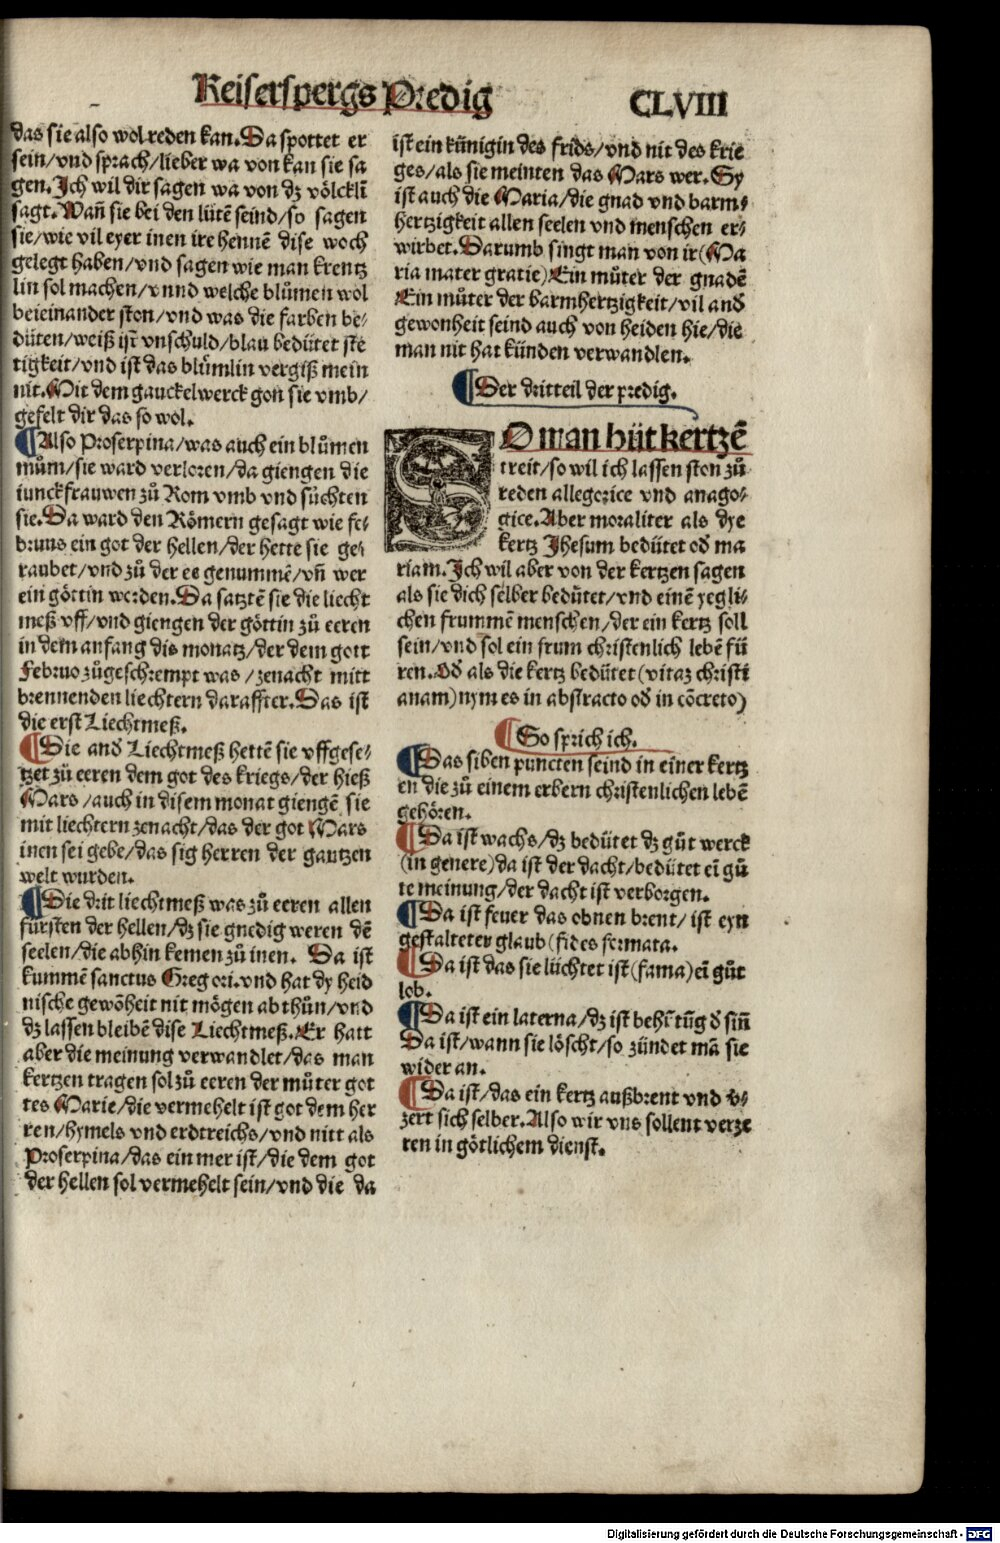 Keiserspergs Predig CLVIII
das sie also wol reden kan. Da spottet er
sein/vnd sprach/lieber wa von kan sie sa
gen. Ich wil dir sagen wa von dz völcklī
sagt. Wañ sie bei den lütē seind/so sagen
sie/wie vil eyer inen ire hennē dise woch
gelegt haben/vnd sagen wie man krentz
lin sol machen/vnnd welche blůmen wol
beieinander ston/vnd was die farben be⸗
düten/weiß ist vnschuld/blau bedütet ste
tigkeit/vnd ist das blůmlin vergiß mein
nit. Mit dem gauckelwerck gon sie vmb/
gefelt dir das so wol.
¶Also Proserpina/was auch ein blůmen
mům/sie ward verloren/da giengen die
iunckfrauwen zů Rom vmb vnd sůchten
sie. Da ward den Römern gesagt wie fe⸗
bruus ein got der hellen/der hette sie ge⸗
raubet/vnd zů der ee genummē/vñ wer
ein göttin worden. Da satztē sie die liecht
meß vff/vnd giengen der göttin zů eeren
in dem anfang dis monatz/der dem gott
Februo zůgeschrempt was/zenacht mitt
brennenden liechtern daraffter. Das ist
die erst Liechtmeß.
¶Die and̄ Liechtmeß hettē sie vffgese⸗
tzet zů eeren dem got des kriegs/der hieß
Mars/auch in disem monat giengē sie
mit liechtern zenacht/das der got Mars
inen sei gebe/das sig herren der gantzen
welt wurden.
¶Die drit liechtmeß was zů eeren allen
fürsten der hellen/dz sie gnedig weren dē
seelen/die abhin kemen zů inen. Da ist
kummē sanctus Gregori. vnd hat dy heid
nische gewöheit nit mögen abthůn/vnd
dz lassen bleibē dise Liechtmeß. Er hatt
aber die meinung verwandlet/das man
kertzen tragen sol zů eeren der můter got
tes Marie/die vermehelt ist got dem her
ren/hymels vnd erdtreichs/vnd nitt als
Proserpina/das ein mer ist/die dem got
der hellen sol vermehelt sein/vnd die da
ist ein künigin des frids/vnd nit des krie
ges/als sie meinten das Mars wer. Sy
ist auch die Maria/die gnad vnd barm⸗
hertzigkeit allen seelen vnd menschen er⸗
wirbet. Darumb singt man von ir (Ma
ria mater gratie) Ein můter der gnadē
Ein můter der barmhertzigkeit/vil and̄
gewonheit seind auch von heiden hie/die
man nit hat künden verwandlen.
¶Der dritteil der predig.
SO man hüt kertzē
treit/so wil ich lassen ston zů
reden allegorice vnd anago⸗
gice. Aber moraliter als dye
kertz Jhesum bedütet od̄ ma
riam. Ich wil aber von der kertzen sagen
als sie dich selber bedütet/vnd einē yegli⸗
chen frummē menschen/der ein kertz soll
sein/vnd sol ein frum christenlich lebē fü
ren. Od̄ als die kertz bedütet (vitaz christi
anam) nym es in abstracto od̄ in cōcreto)
¶So sprich ich.
¶Das siben puncten seind in einer kertz
en die zů einem erbern christenlichen lebē
gehören.
¶Da ist wachs/dz bedütet dz gůt werck
(in genere) da ist der dacht/bedütet eī gů
te meinung/der dacht ist verborgen.
¶Da ist feuer das obnen brent/ist eyn
gestalteter glaub (fides formata.
¶Da ist das sie lüchtet ist (fama) eī gůt
lob.
¶Da ist ein laterna/dz ist behůtūg d̄ siñ
Da ist/wann sie löscht/so zündet mā sie
wider an.
¶Da ist/das ein kertz außbrent vnd v̄⸗
zert sich selber. Also wir vns sollent verze
ren in götlichem dienst.
Digitalisierung gefördert durch die Deutsche Forschungsgemeinschaft - DFG